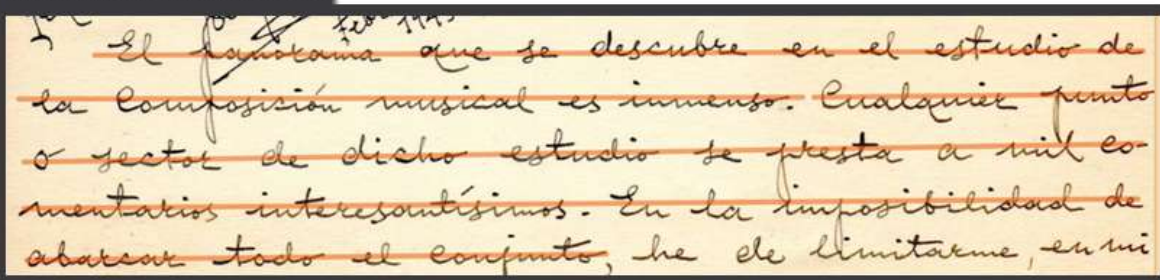 El panorama que se descubre en el estudio de
la Composición musical es inmenso. Cualquier punto
o sector de dicho estudio se presta a mil co-
mentarios interesantísimos. En la imposibilidad de
abarcar todo el conjunto, he de limitarme, en mi